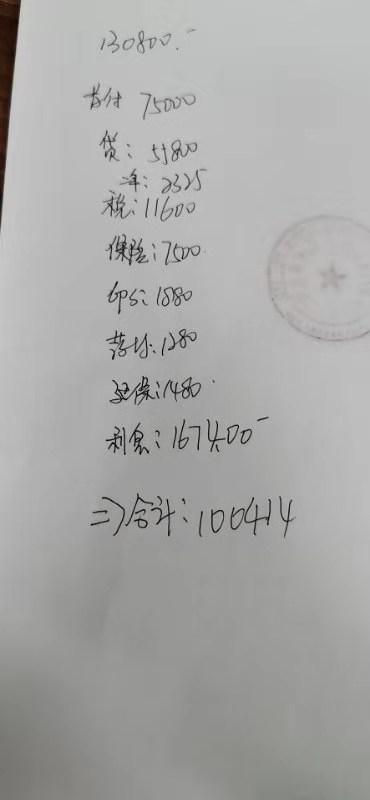 130800.-
首付 75000
贷：55800
二年：2325
税：11600
保险：7500.
印合：1880
落材：1280
延保：1480.
利息：1674.00-
=>合计：100414